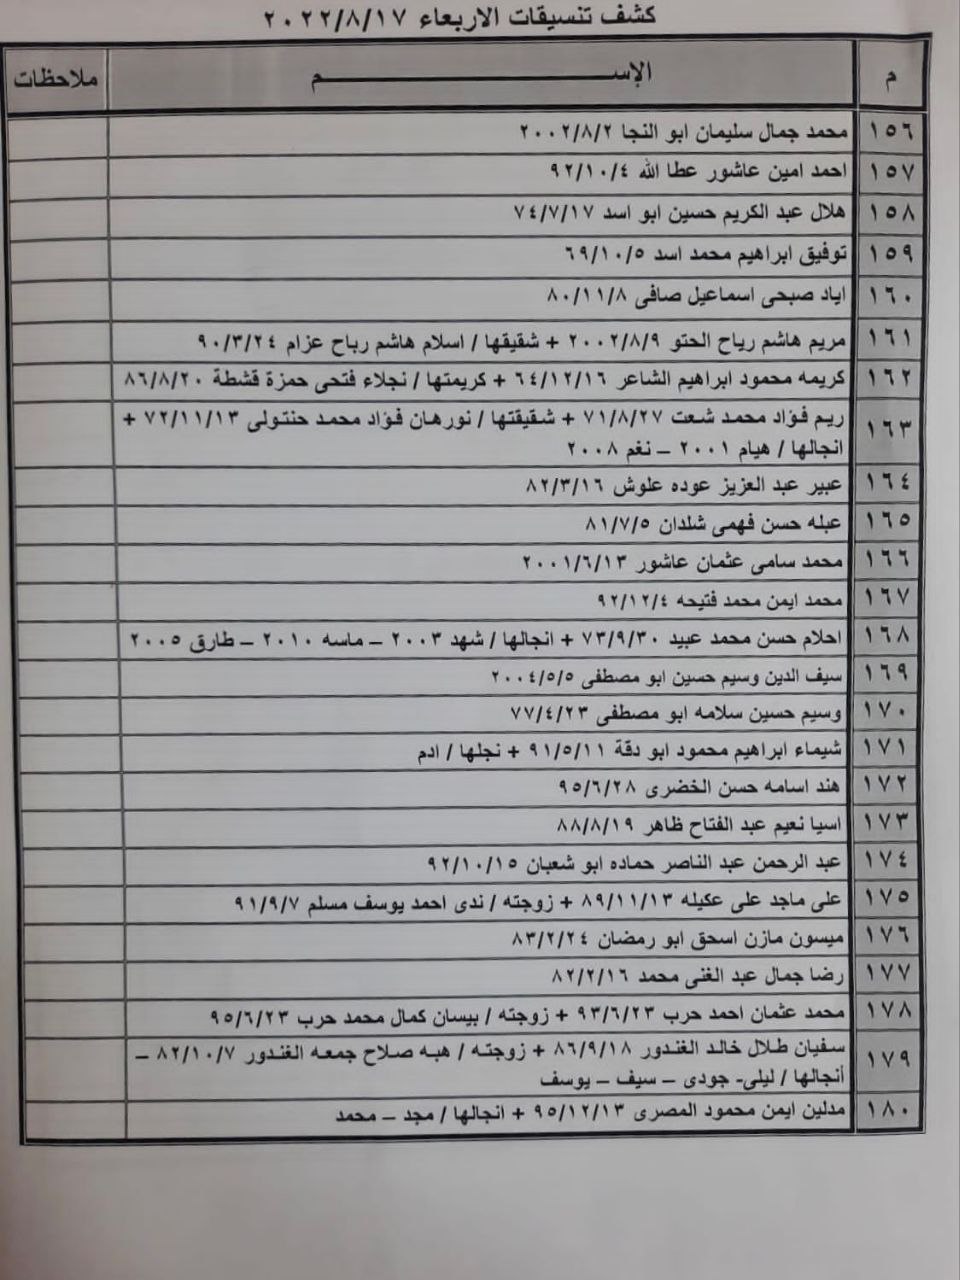 كشف تنسيقات الاربعاء ٢٠٢٢/٨/١٧
م الإســـم ملاحظات
١٥٦ محمد جمال سليمان ابو النجا ٢٠٠٢/٨/٢
١٥٧ احمد امين عاشور عطا الله ٩٢/١٠/٤
١٥٨ هلال عبد الكريم حسين ابو اسد ٧٤/٧/١٧
١٥٩ توفيق ابراهيم محمد اسد ٦٩/١٠/٥
١٦٠ اياد صبحى اسماعيل صافى ٨٠/١١/٨
١٦١ مريم هاشم رياح الحتو ٢٠٠٢/٨/٩ + شقيقها / اسلام هاشم رباح عزام ٩٠/٣/٢٤
١٦٢ كريمه محمود ابراهيم الشاعر ٦٤/١٢/١٦ + كريمتها / نجلاء فتحى حمزة قشطة ٨٦/٨/٢٠
١٦٣ ريم فؤاد محمد شعت ٧١/٨/٢٧ + شقيقتها / نورهان فؤاد محمد حنتولى ٧٢/١١/١٣ +
انجالها / هيام ٢٠٠١ – نغم ٢٠٠٨
١٦٤ عبير عبد العزيز عوده علوش ٨٢/٣/١٦
١٦٥ عبله حسن فهمى شلدان ٨١/٧/٥
١٦٦ محمد سامى عثمان عاشور ٢٠٠١/٦/١٣
١٦٧ محمد ايمن محمد فتيحه ٩٢/١٢/٤
١٦٨ احلام حسن محمد عبيد ٧٣/٩/٣٠ + انجالها / شهد ٢٠٠٣ – ماسه ٢٠١٠ – طارق ٢٠٠٥
١٦٩ سيف الدين وسيم حسين ابو مصطفى ٢٠٠٤/٥/٥
١٧٠ وسيم حسين سلامه ابو مصطفى ٧٧/٤/٢٣
١٧١ شيماء ابراهيم محمود ابو دقة ٩١/٥/١١ + نجلها / ادم
١٧٢ هند اسامه حسن الخضرى ٩٥/٦/٢٨
١٧٣ اسيا نعيم عبد الفتاح ظاهر ٨٨/٨/١٩
١٧٤ عبد الرحمن عبد الناصر حماده ابو شعبان ٩٢/١٠/١٥
١٧٥ على ماجد على عكيله ٨٩/١١/١٣ + زوجته / ندى احمد يوسف مسلم ٩١/٩/٧
١٧٦ ميسون مازن اسحق ابو رمضان ٨٣/٢/٢٤
١٧٧ رضا جمال عبد الغنى محمد ٨٢/٢/١٦
١٧٨ محمد عثمان احمد حرب ٩٣/٦/٢٣ + زوجته / بيسان كمال محمد حرب ٩٥/٦/٢٣
١٧٩ سفيان طلال خالد الغندور ٨٦/٩/١٨ + زوجته / هبه صلاح جمعه الغندور ٨٢/١٠/٧ –
أنجالها / ليلى- جودى – سيف – يوسف
١٨٠ مدلين ايمن محمود المصرى ٩٥/١٢/١٣ + انجالها / مجد – محمد